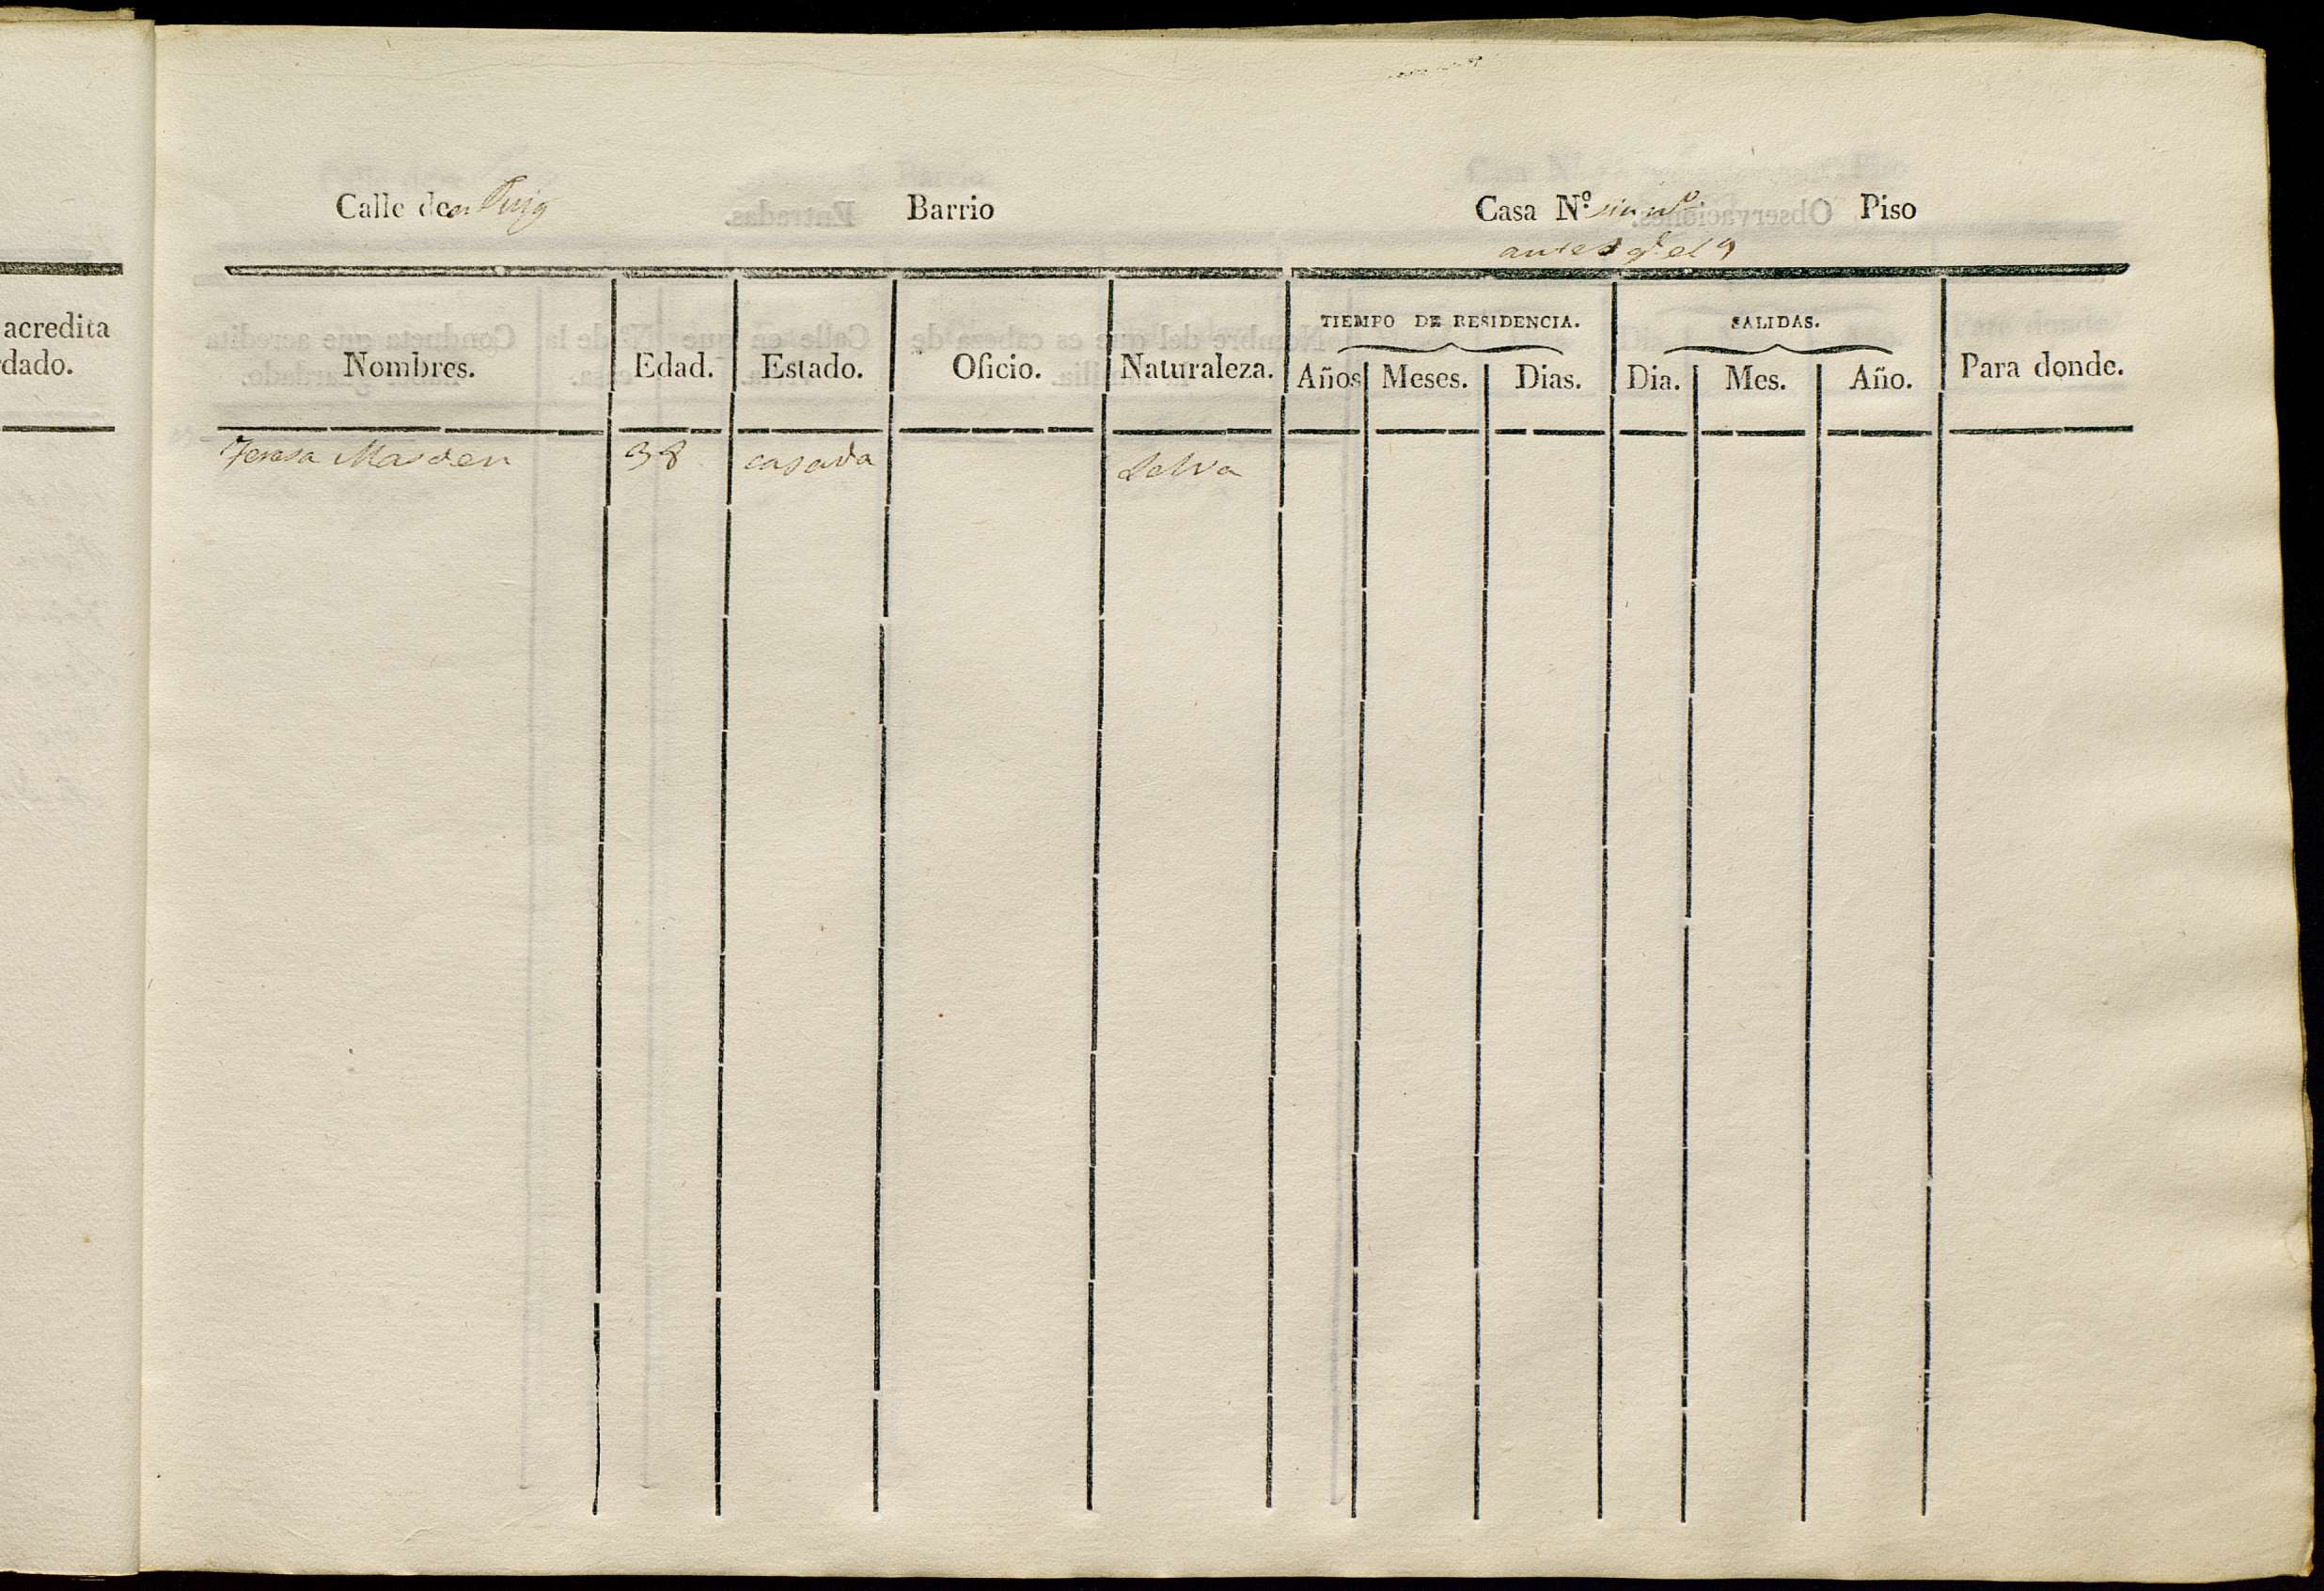 acredita
dado.
Calle de en Puig Barrio Casa Nº sin nº Piso
antes q.e el 9
TIEMPO DE RESIDENCIA. SALIDAS.
Nombres. Edad. Estado. Oficio. Naturaleza. Años Meses. Dias. Dia. Mes. Año. Para donde.
Teresa Masden 38 casada Selva